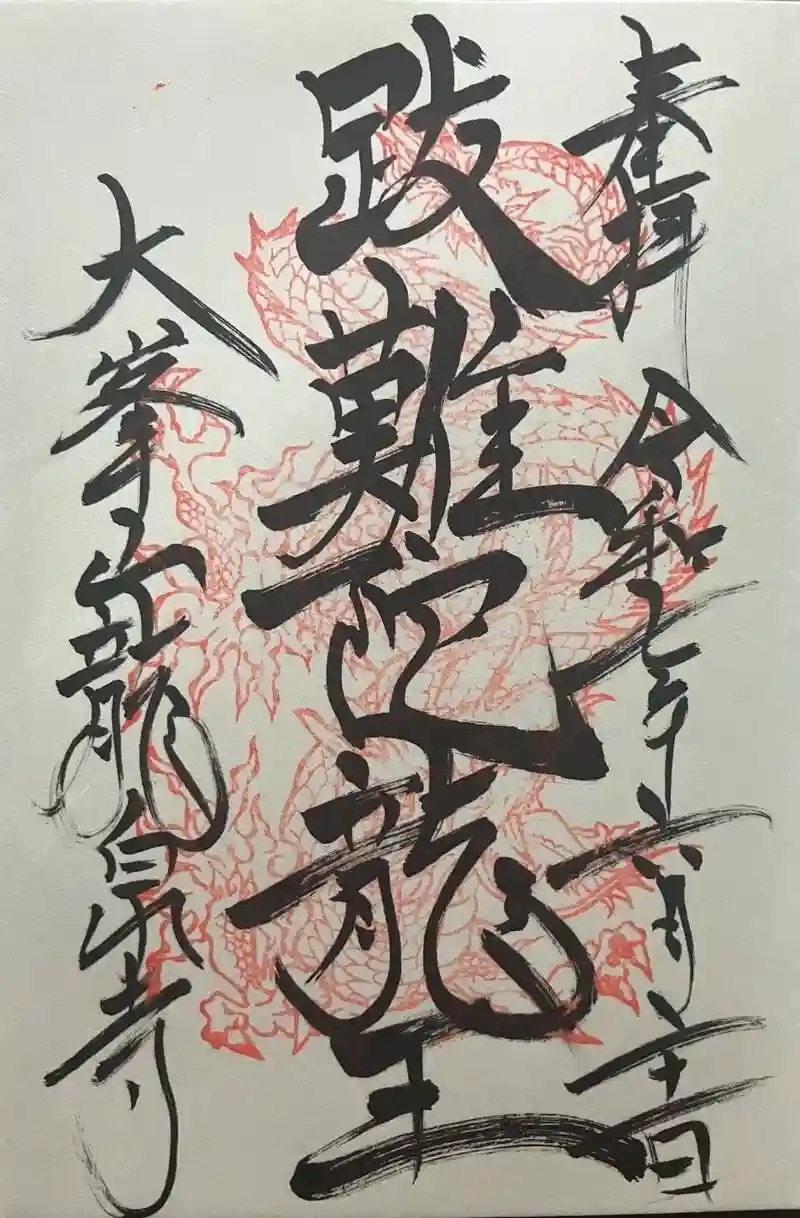 奉拝 令和七年六月日
跋難陀龍王
大峯山龍泉寺